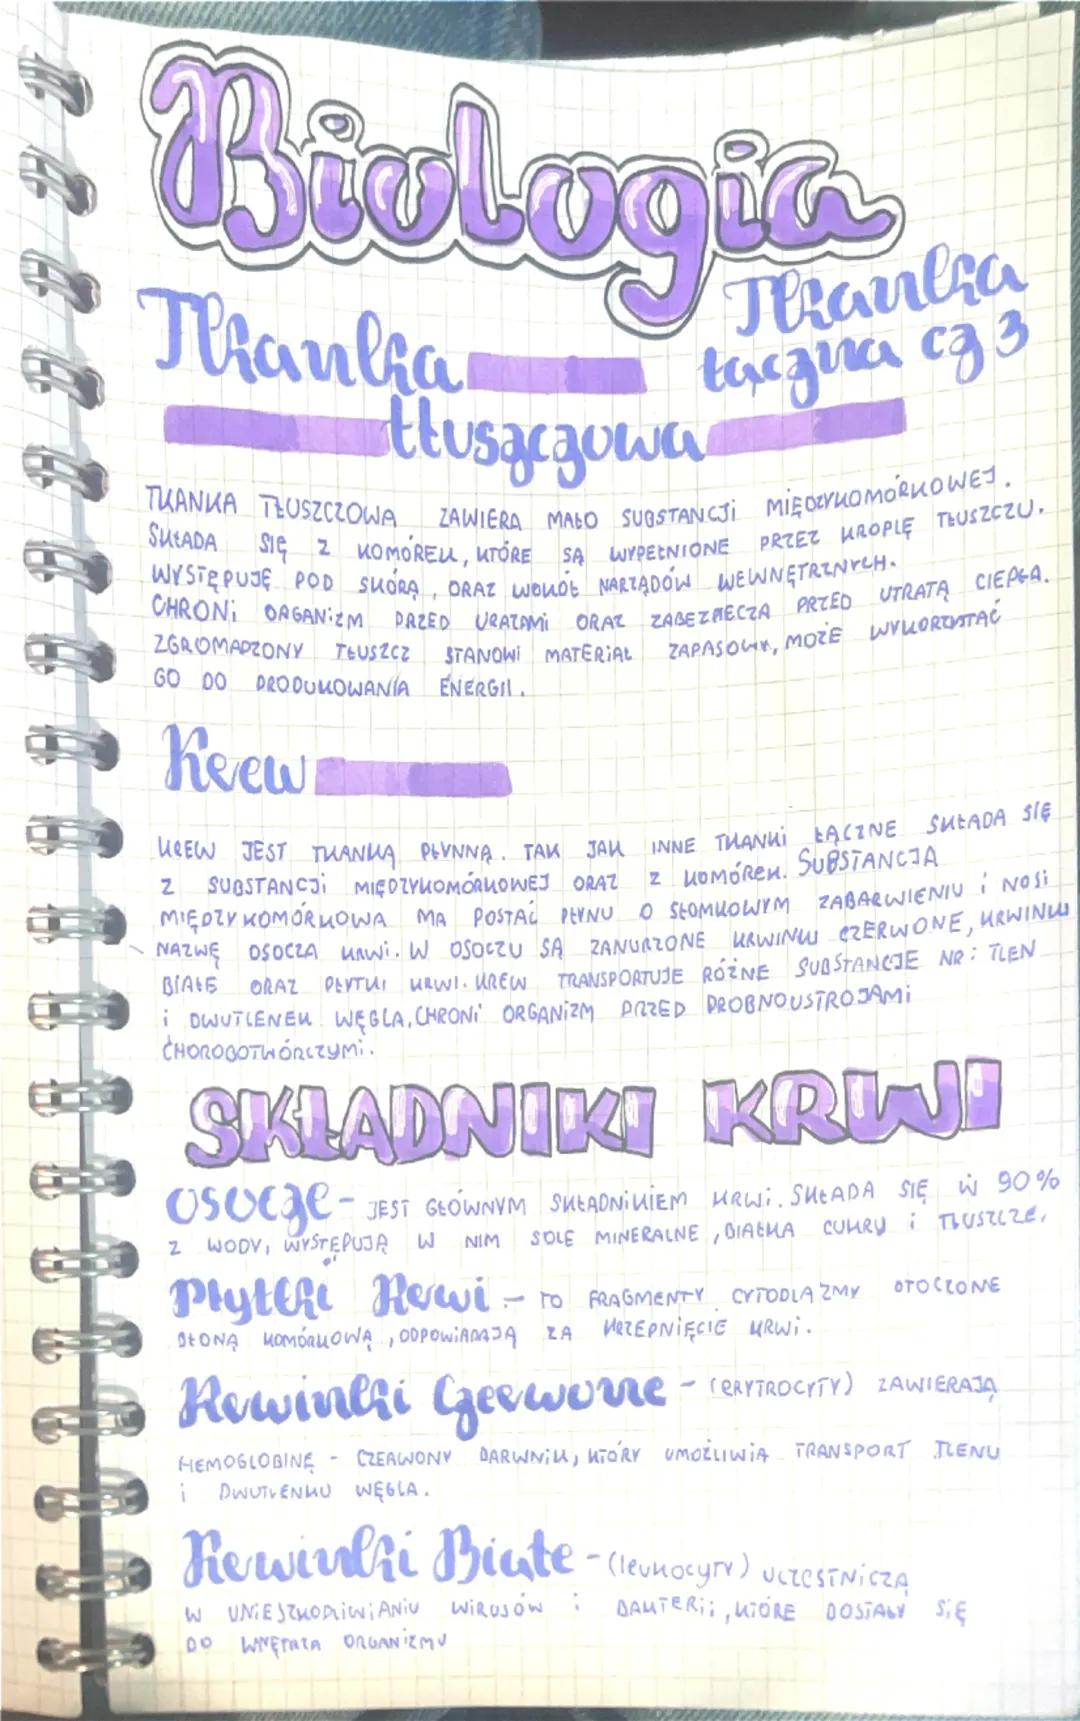 Biologia
Tkanka łączna cz 3
Tkanka tłuszczowa
TKANKA TŁUSZCZOWA ZAWIERA MAŁO SUBSTANCJI MIĘDZYKOMÓRKOWEJ.
SKŁADA SIĘ Z KOMÓREK, KTÓRE SĄ WYPEŁNIONE PRZEZ KROPLĘ TŁUSZCZU.
WYSTĘPUJĘ POD SKÓRĄ, ORAZ WOKÓŁ NARZĄDÓW WEWNĘTRZNYCH.
CHRONI ORGANIZM PRZED URAZAMI ORAZ ZABEZPIECZA PRZED UTRATĄ CIEPŁA.
ZGROMADZONY TŁUSZCZ STANOWI MATERIAŁ ZAPASOWY, MOŻE WYKORZYSTAĆ
GO DO PRODUKOWANIA ENERGII.
Krew
KREW JEST TKANKĄ PŁYNNĄ. TAK JAK INNE TKANKI ŁĄCZNE SKŁADA SIĘ
Z SUBSTANCJI MIĘDZYKOMÓRKOWEJ ORAZ Z KOMÓREK. SUBSTANCJA
MIĘDZYKOMÓRKOWA MA POSTAĆ PŁYNU O SŁOMKOWYM ZABARWIENIU I NOSI
NAZWĘ OSOCZA KRWI. W OSOCZU SĄ ZANURZONE KRWINKI CZERWONE, KRWINKI
BIAŁE ORAZ PŁYTKI KRWI. KREW TRANSPORTUJE RÓŻNE SUBSTANCJE NP: TLEN
I DWUTLENEK WĘGLA, CHRONI ORGANIZM PRZED DROBNOUSTROJAMI
CHOROBOTWÓRCZYMI.
SKŁADNIKI KRWI
Osocze - JEST GŁÓWNYM SKŁADNIKIEM KRWI. SKŁADA SIĘ W 90%
Z WODY, WYSTĘPUJĄ W NIM SOLE MINERALNE, BIAŁKA CUKRY I TŁUSZCZE.
Płytki Krwi - TO FRAGMENTY CYTOPLAZMY OTOCZONE
BŁONĄ KOMÓRKOWĄ, ODPOWIADAJĄ ZA KRZEPNIĘCIE KRWI.
Krwinki Czerwone - (ERYTROCYTY) ZAWIERAJĄ
HEMOGLOBINĘ - CZERWONY BARWNIK, KTÓRY UMOŻLIWIA TRANSPORT TLENU
I DWUTLENKU WĘGLA.
Krwinki Białe - (leukocyty) UCZESTNICZĄ
W UNIESZKODLIWIANIU WIRUSÓW I BAKTERII, KTÓRE DOSTAŁY SIĘ
DO WNĘTRZA ORGANIZMU